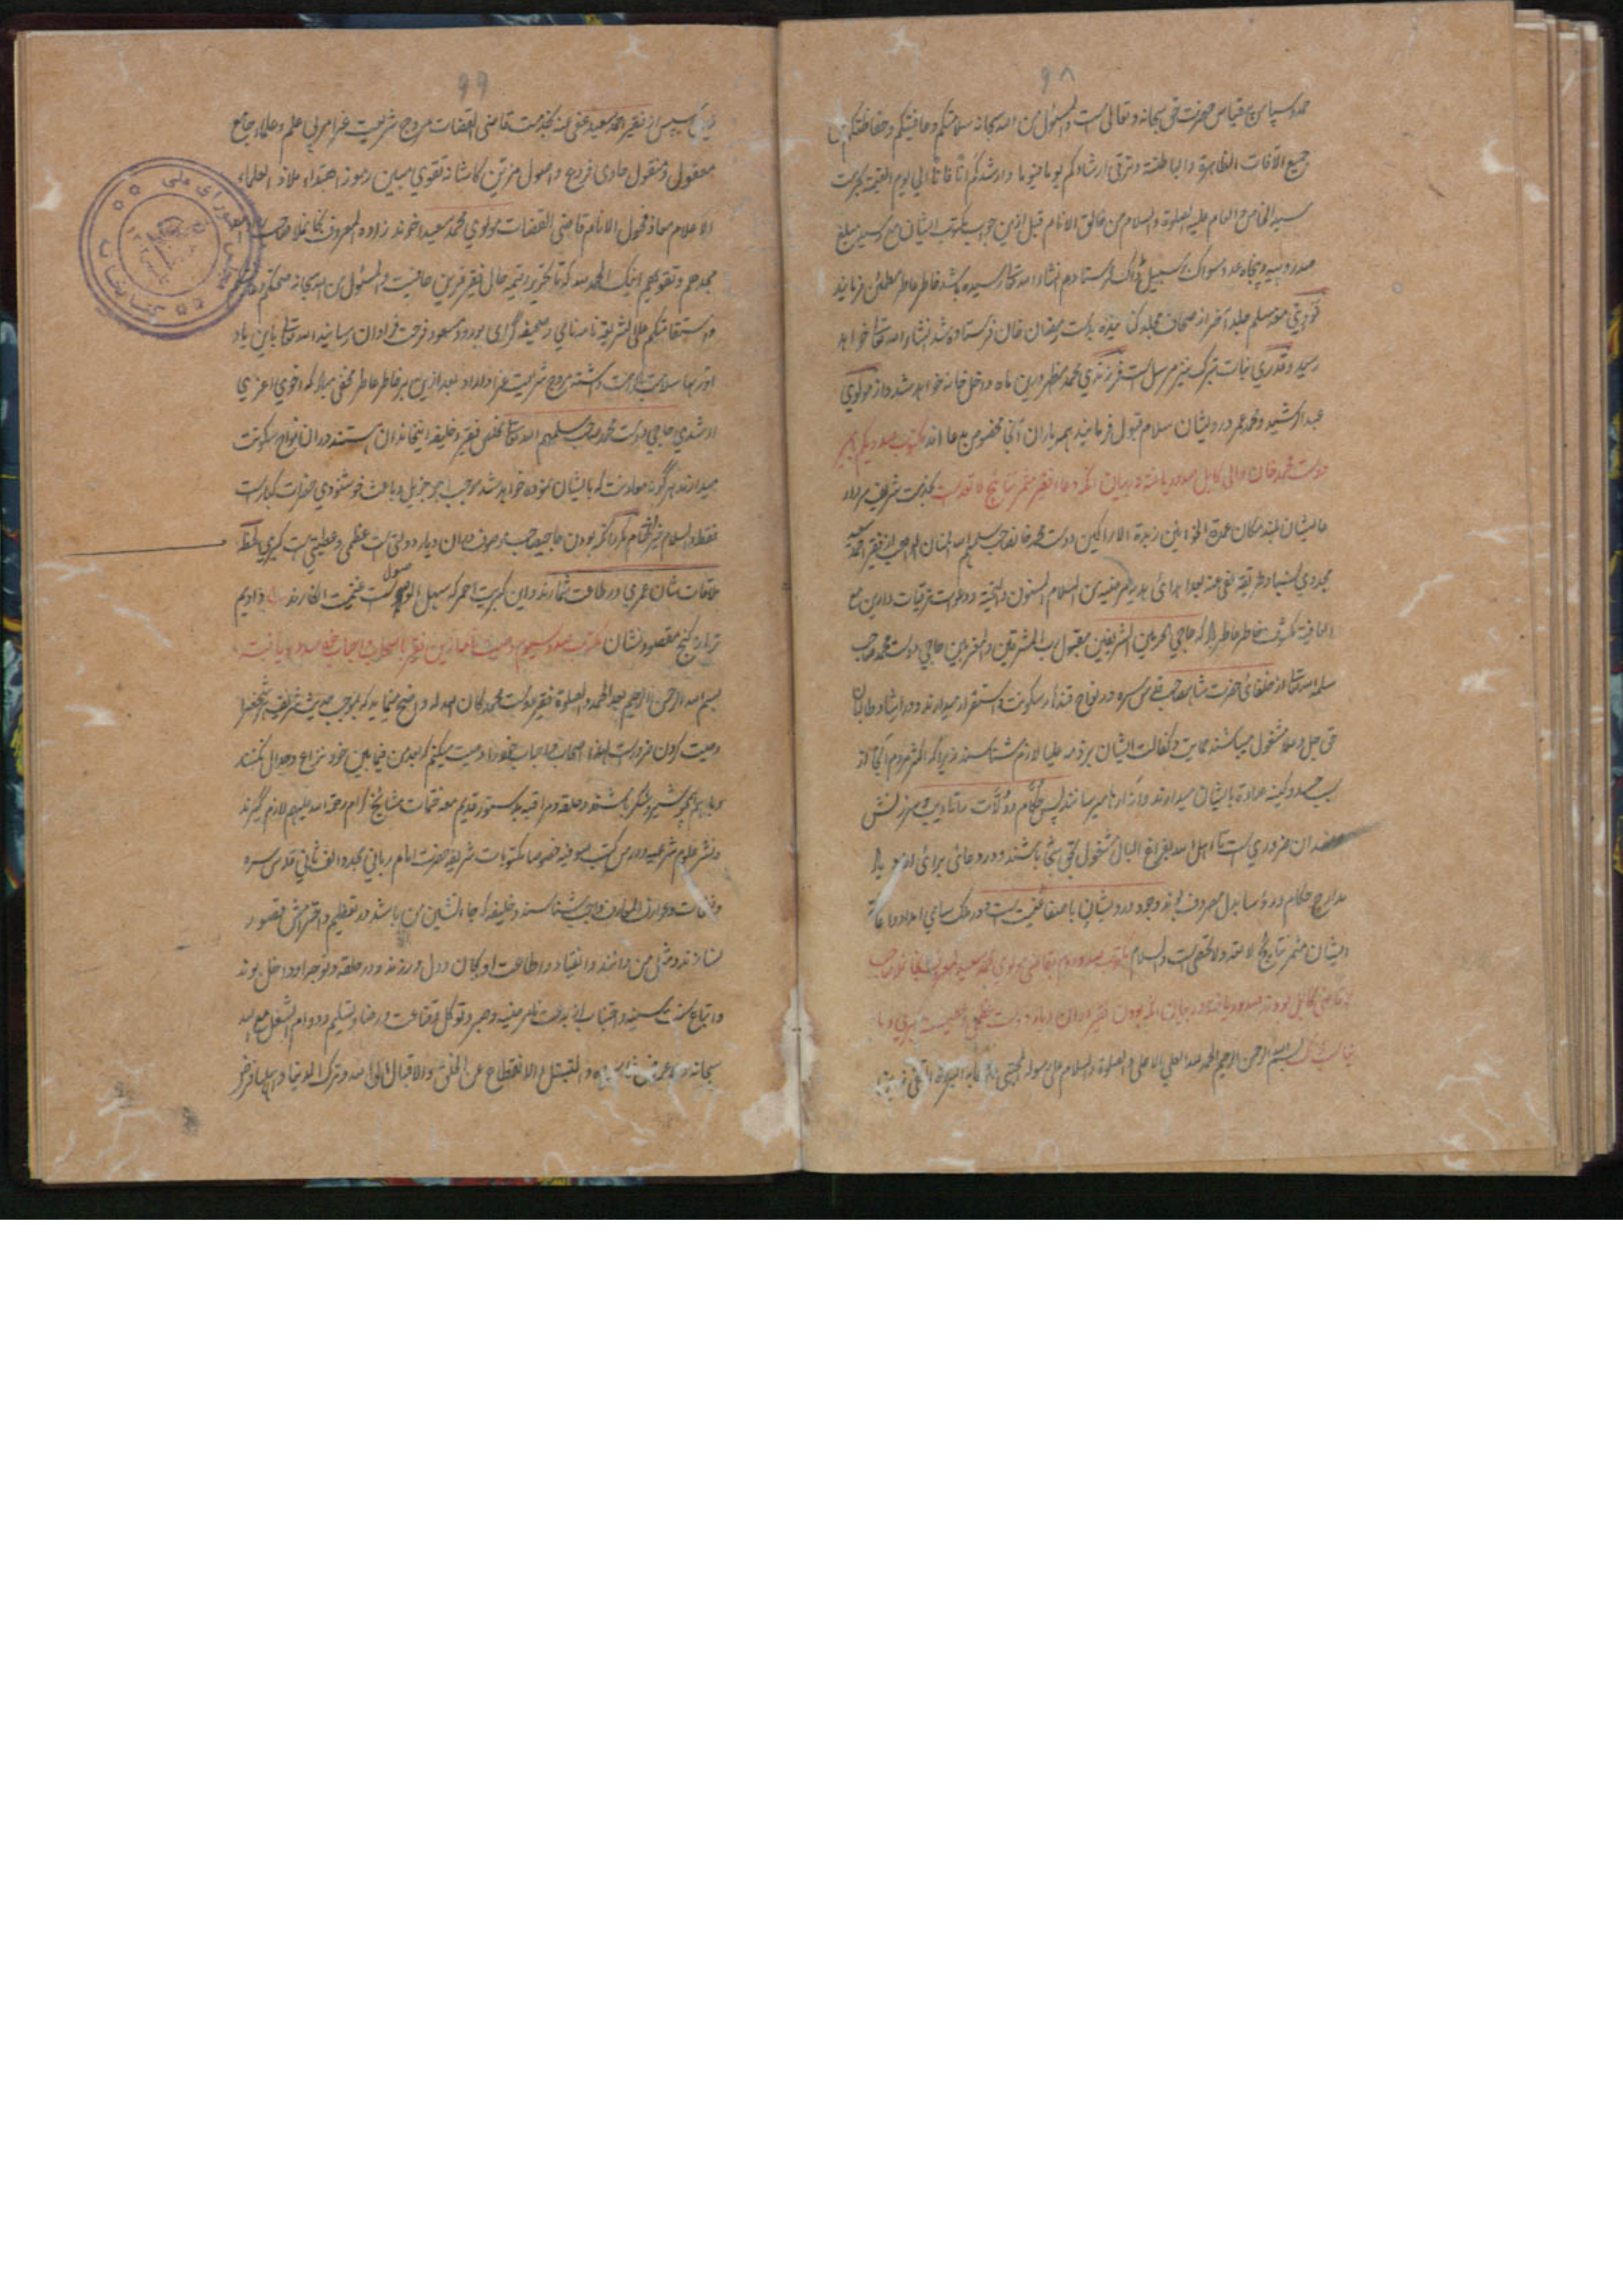 ۹۸
حمد و سپاس بیقیاس حضرت حق سبحانه و تعالی است والمسئول من الله سبحانه سلامتکم وعافیتکم وحفاظتکم من
جمیع الآفات الظاهرة والباطنة وترقی ارشادکم یوما فیوما وارشدکم آنا فآنا الی یوم القیمة بحرمت
سید الخاص والعام علیه الصلوة والسلام من خالق الانام قبل ازین جواب مکتوب ایشان مع رسید مبلغ
صد روپیه و پنجاه عدد سواک بر سبیل ڈاک فرستادم انشاء الله تعالی رسیده باشد خاطر عاطر مطمئن فرمایند
مسلم جلد آخر از صحاح مجلد کنانیده بدست رمضان خان فرستاده شد انشاء الله تعالی خواهد
رسید و قدری نبات تبرک نیز مرسل است فرزندی محمد مظهر درین ماه داخل خانه خواهد شد و از مولوی
عبد الرشید و محمد عمر درویشان سلام قبول فرمایند بهمه یاران آنجا مخصوص بدعا اند مکتوب صد و یکم بامیر
دوست محمد خان والی کابل صدور یافته در بیان آنکه دعاء فقرا مثمر نتائج لا تعد است بخدمت شریف سردار
عالیشان بلند مکان عمدة الخوانین زبدة الاراکین دوست محمد خانصاحب سلمهم الله المنان الواهب از فقیر احمد سعید
مجددی نسبا و طریقة عفی عنه بعد اهدای هدیه مرضیه من السلام المسنون والتحیة ودعوات ترقیات دارین مع
العافیة مکشوف خاطر عاطر باد که حاجی الحرمین الشریفین مقبول رب المشرقین والمغربین حاجی دوست محمد صاحب
سلمه الله تعالی از خلفای حضرت شاه صاحب قدس سره در نواح قندهار سکونت و استقرار میدارند و در ارشاد طالبان
حق جل وعلا مشغول میباشند حمایت و کفالت ایشان بر ذمه علیا لازم شناسند زیرا که اکثر مردم آنجا از
سبب حسد و کینه عداوة بایشان میدارند و آزارها میرسانند پس حکام و ولات را تادیب و سرزنش
مفسدان ضروری است تا اهل الله بفراغ البال مشغول بحق تعالی باشند و در دعائی برائی
مدارج حکام و رؤسا بدل مصروف بوند وجود درویشان باصفا غنیمت است در ملک سامی امداد و اعانة
ایشان مثمر نتائج لا تعد ولا تحصی است والسلام مکتوب صد و دوم بقاضی مولوی محمد سعید المعروف بخانملا صاحب
که قاضی کابل بودند صدور یافته در بیان آنکه بودن فقیر دران دیار دولت عظمی و عطیه کبری
بسم الله الرحمن الرحیم الحمد لله العلی الاعلی والصلوة والسلام علی رسوله المجتبی
۹۹
سپس از فقیر احمد سعید عفی عنه بخدمت قاضی القضات مروج شریعت غرا مربی علم و علماء جامع
معقول و منقول حاوی فروع و اصول مزین کاشانه تقوی مبین رموز اهتداء ملاذ العلماء
الاعلام معاذ فحول الانام قاضی القضات مولوی محمد سعید اخوند زاده المعروف بخانملا صاحب
مجدهم وتقویهم اینک الحمد لله که تا تحریر رقیمه حال فقیر قرین عافیت والمسئول من الله سبحانه صحتکم وعافیتکم
واستقامتکم علی الشریعة نامه نامی و صحیفه گرامی بورود مسعود فرحت فراوان رسانید الله تعالی باین یاد
آوریها سلامت باکرامت داشته مروج شریعت غرا داراد بعد ازین بر خاطر عاطر مخفی مبادا که اخوی اعزی
ارشدی حاجی دوست محمد صاحب سلمهم الله تعالی مخلص فقیر و خلیفه اینخاندان هستند دران نواح سکونت
میدارند هر گونه معاونت که بایشان نموده خواهد شد موجب اجر جزیل و باعث خوشنودی حضرات کبار است
فقط والسلام خیر الختام مکرر آنکه بودن حاجیصاحب موصوف دران دیار دولتی است عظمی و عطیتی است کبری لحظه
ملاقات شان عمری در طاعت شمارند و این کبریت احمر که سهل الوصول است غنیمت انگارند ع دادیم
ترا ز گنج مقصود نشان مکتوب صد و سیوم وصیت نامه ازین فقیر باصحاب و احباب صدور یافته
بسم الله الرحمن الرحیم بعد الحمد والصلوة فقیر دوست محمد کان الله له واضح مینماید که بموجب حدیث شریف هر شخص را
وصیت کردن ضرورت است لهذا اصحاب و احباب خود را وصیت میکنم که بعد من فیما بین خود نزاع و جدال نکنند
و باهم همچو شیر و شکر باشند و حلقه و مراقبه بدستور قدیم مع ختمات مشائخ کرام رحمة الله علیهم لازم گیرند
ونشر علوم شرعیه و درس کتب صوفیه خصوصا مکتوبات شریفه حضرت امام ربانی مجدد الف ثانی قدس سره
ونفحات وعوارف المعارف واجب شناسند و خلیفه که جاء نشین من باشد در تعظیم و احترامش قصور
نسازند و مثل من دانند و انقیاد و اطاعت او بجان و دل ورزند و در حلقه و توجه او داخل بوند
و اتباع سنت سنیه و اجتناب از بدعت نامرضیه و صبر و توکل و قناعت و رضا و تسلیم و دوام الشغل مع الله
سبحانه والتبتل والانقطاع عن الخلق والاقبال الی الله و ترک الدنیا و اهلها